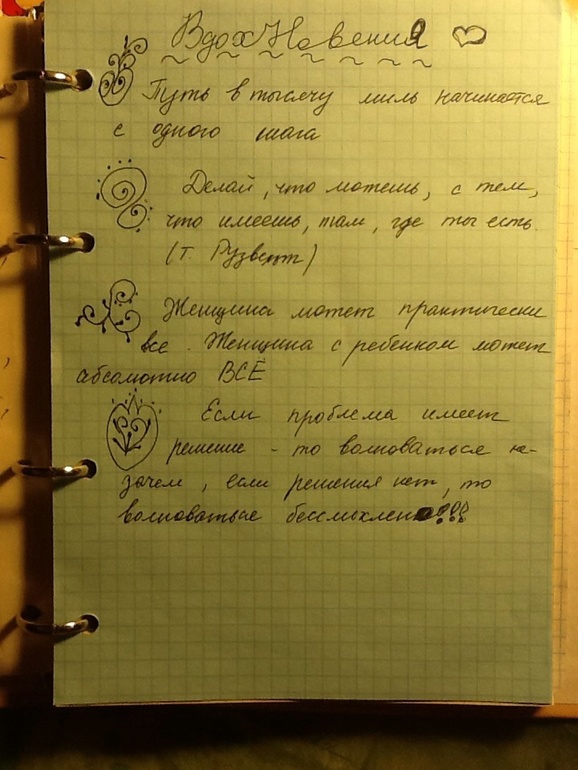 ВдохНовения
Путь в тысячу миль начинается
с одного шага
Делай, что можешь, с тем,
что имеешь, там, где ты есть.
(Т. Рузвельт)
Женщина может практически
все. Женщина с ребенком может
абсолютно ВСЁ
Если проблема имеет
решение - то волноваться не-
зачем, если решения нет, то
волноваться бессмысленно!!!